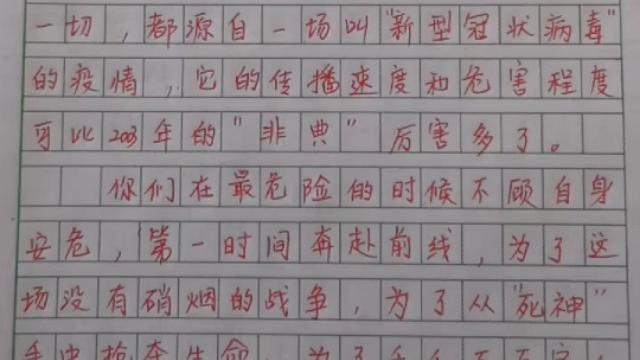 一切，都源自一场叫"新型冠状病毒"
的疫情，它的传播速度和危害程度
可比2003年的"非典"厉害多了。
你们在最危险的时候不顾自身
安危，第一时间奔赴前线，为了这
场没有硝烟的战争，为了从"死神"
手中抢夺生命